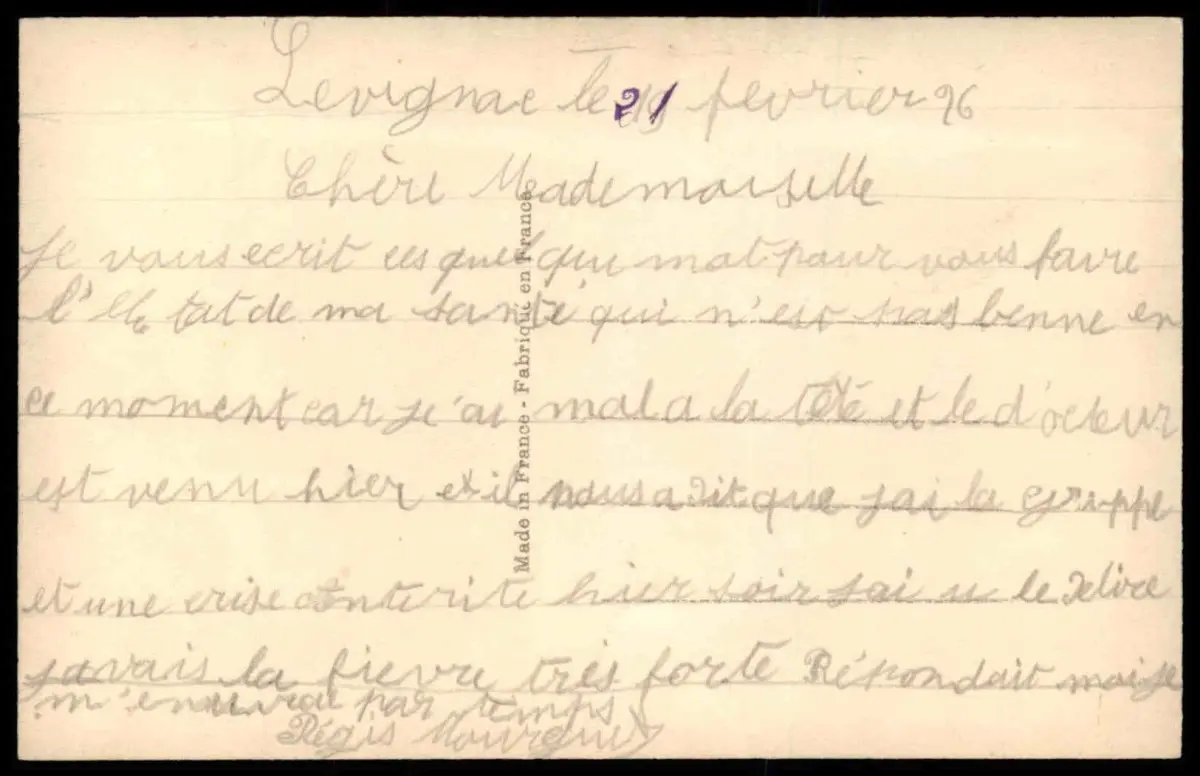 Levignac le 21 fevrier 96
Chère Mademoiselle
Je vous ecrit ces quel qui mot pour vous faire
l'etat de ma santé qui n'est pas bonne en
ce moment car je'ai mal a la tête et le d'octeur
est venu hier et il nous a dit que jai la grippe
et une crise enterite hier soir jai u le delire
javais la fievre très forte Répondait moi je
m'ennuyrai par temps
Régis
Made in France - Fabriqué en France